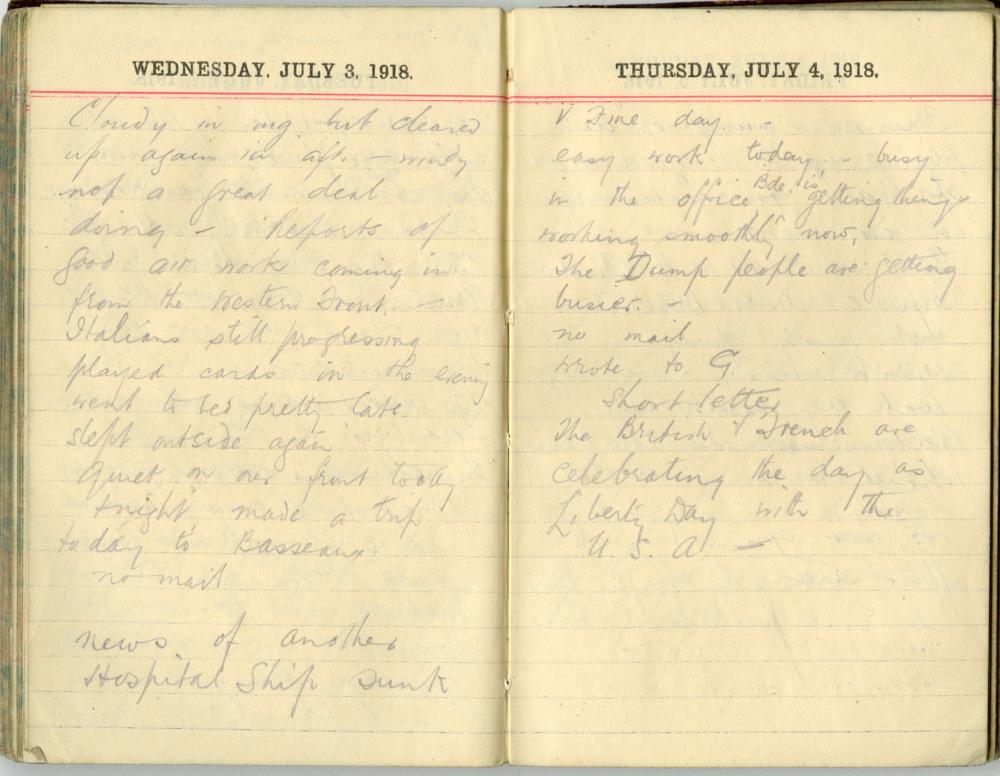 WEDNESDAY, JULY 3, 1918.
Cloudy in mg. but cleared
up again in aft. – windy
not a great deal
doing – Reports of
good air work coming in
from the Western Front. –
Italians still progressing
played cards in the evening
went to bed pretty late
slept outside again
Quiet on our front today
& night made a trip
today to Basseaux.
no mail
news of another
Hospital Ship sunk
THURSDAY, JULY 4, 1918.
V Fine day –
easy work today – busy
in the office Bde. is getting things
working smoothly now,
The Dump people are getting
busier.
no mail
wrote to G.
Short letter
The British & French are
celebrating the day as
Liberty Day with the
U. S. A –